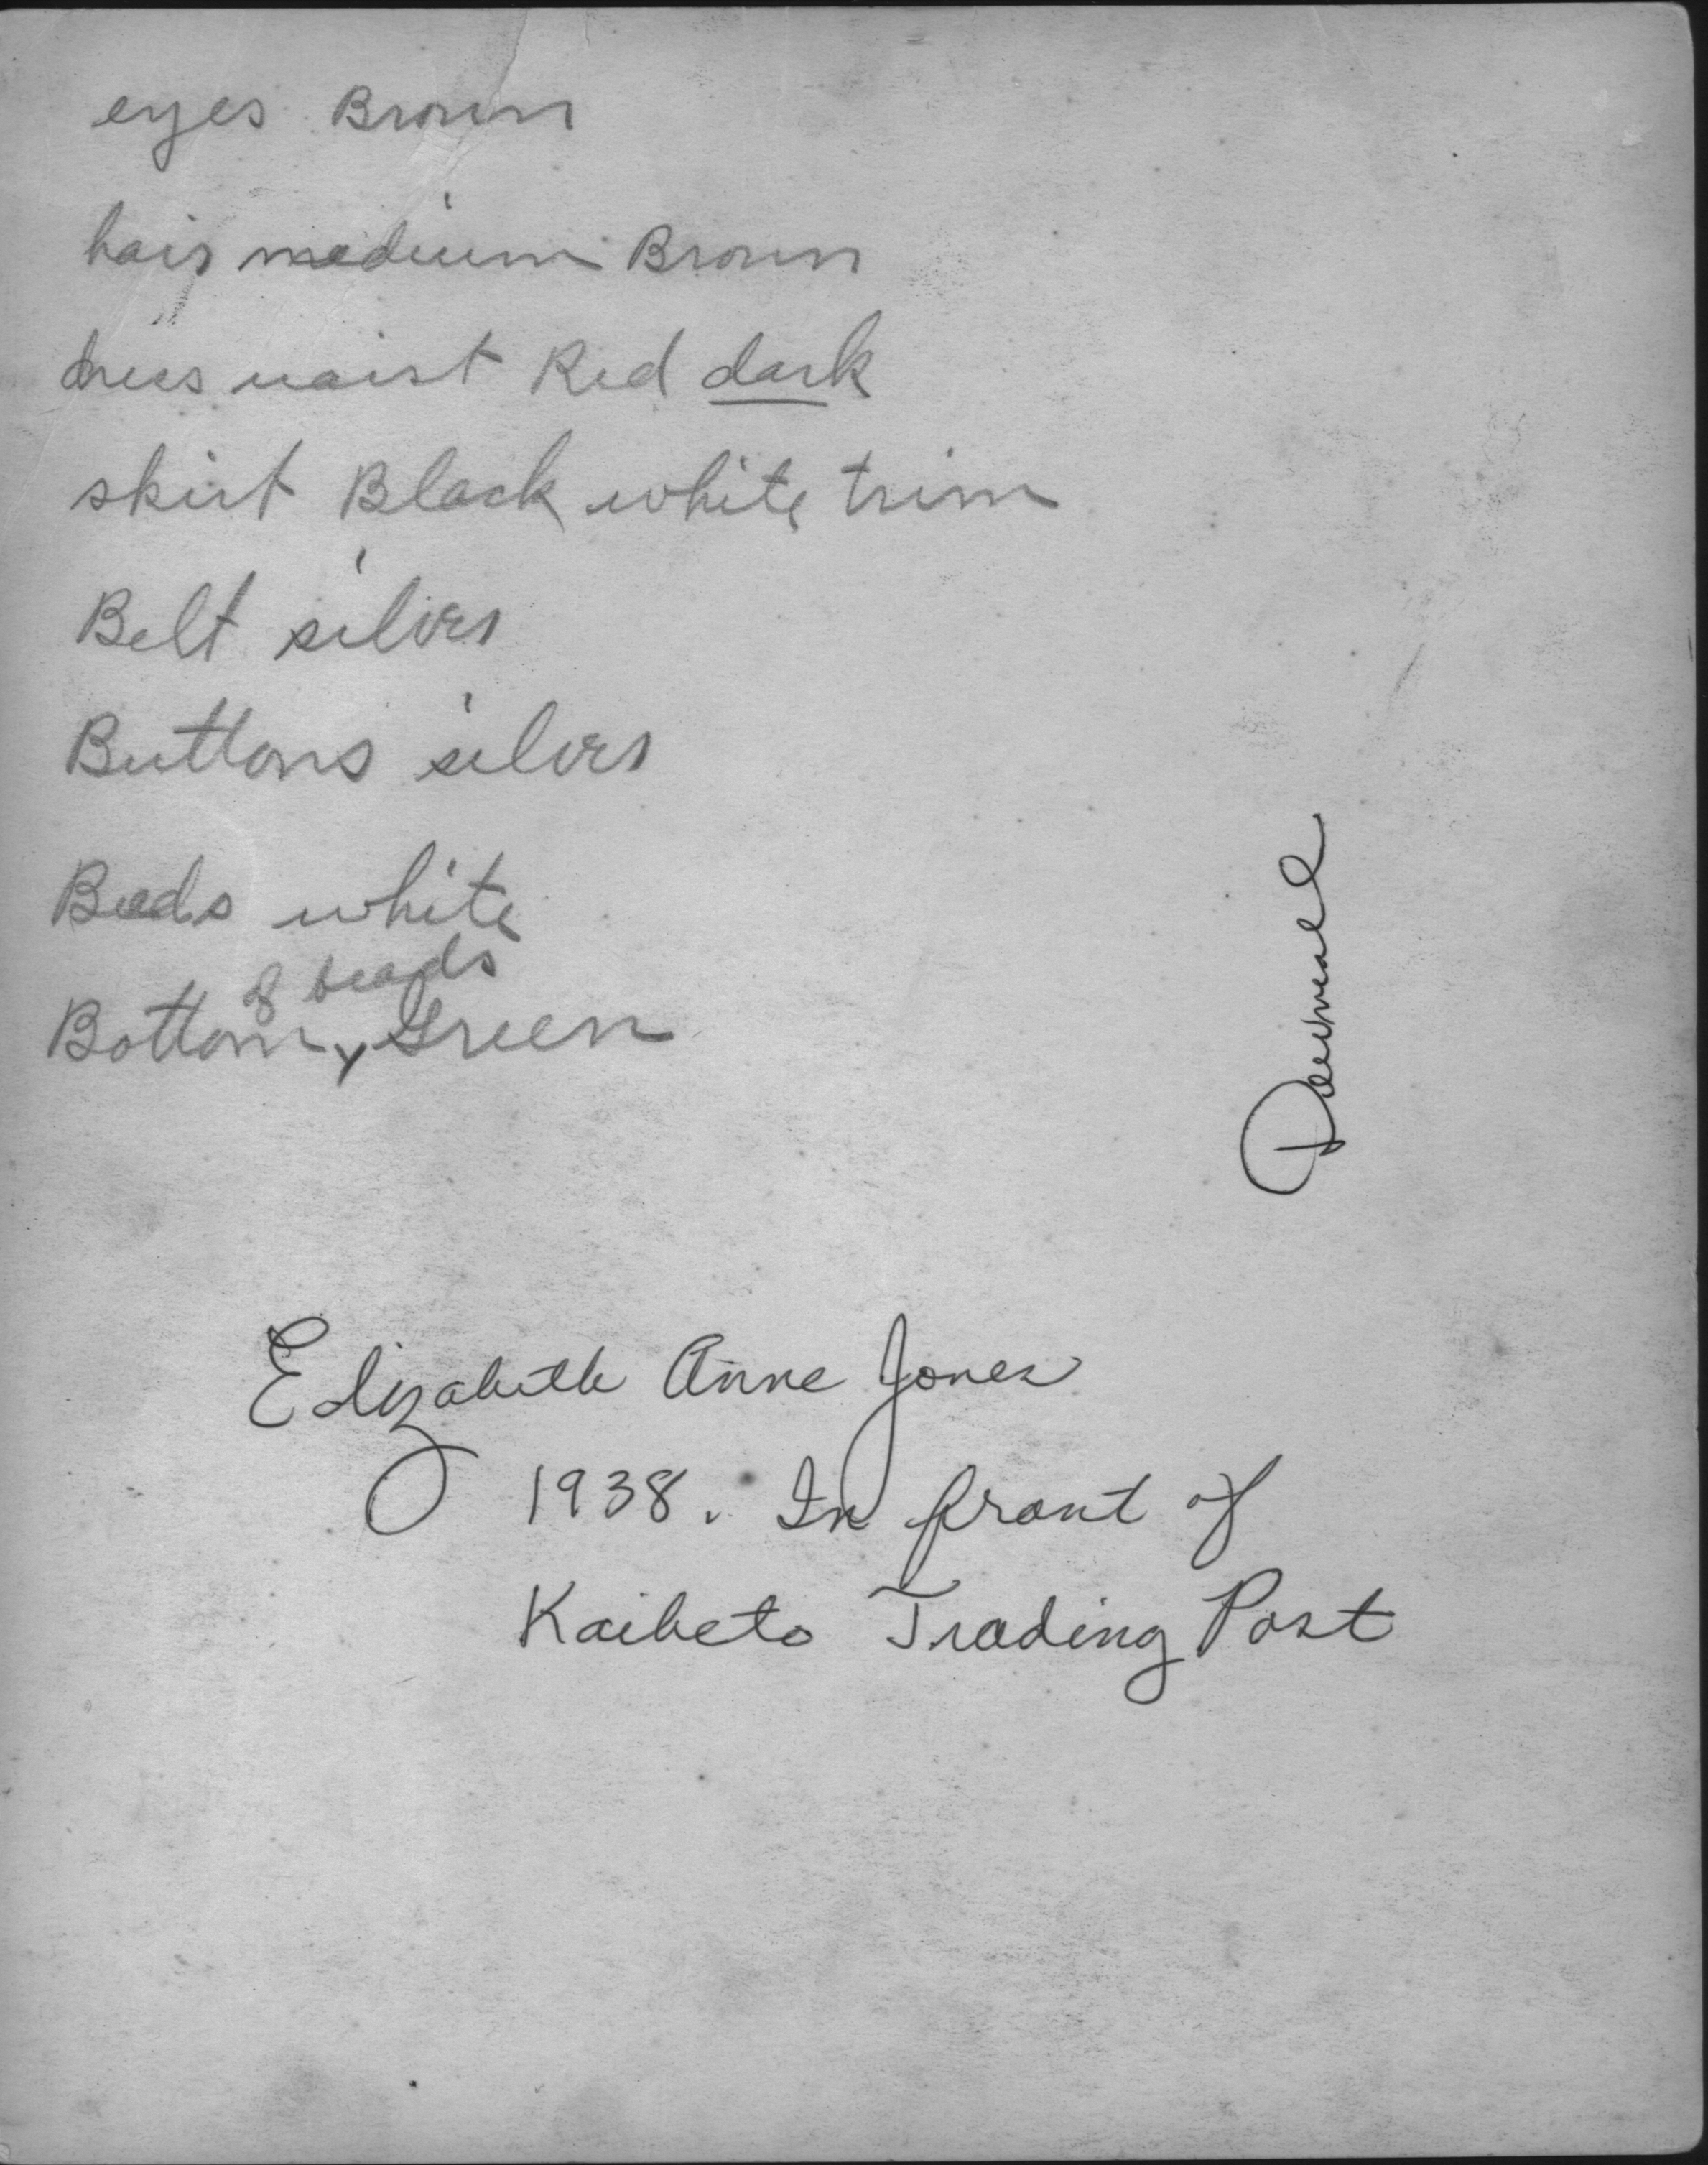 eyes Brown
hair medium Brown
dress waist Red dark
skirt Black white trim
Belt silver
Buttons silver
Beads white
of beads
Bottom Green
Elizabeth Anne Jones
1938. In front of
Kaibeto Trading Post